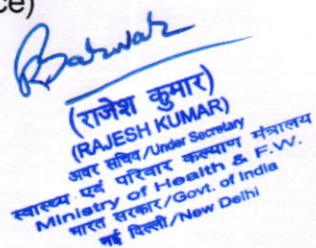 ce)
(राजेश कुमार)
(RAJESH KUMAR)
अवर सचिव/Under Secretary
स्वास्थ्य एवं परिवार कल्याण मंत्रालय
Ministry of Health & F.W.
भारत सरकार/Govt. of India
नई दिल्ली/New Delhi